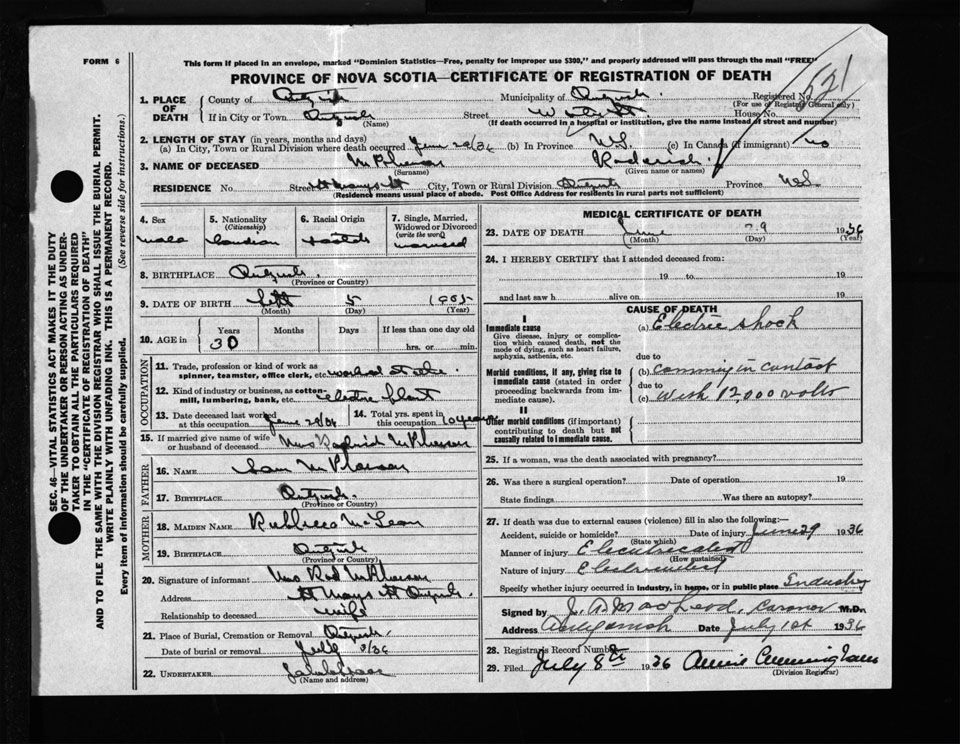 FORM 6
This form if placed in an envelope, marked "Dominion Statistics—Free, penalty for improper use $300," and properly addressed will pass through the mail "FREE"
521
PROVINCE OF NOVA SCOTIA—CERTIFICATE OF REGISTRATION OF DEATH
1. PLACE OF DEATH
County of
Municipality of
Registered No.
(For use of Registrar General only)
If in City or Town
(Name)
Street
House No.
(If death occurred in a hospital or institution, give the name instead of street and number)
2. LENGTH OF STAY (in years, months and days)
(a) In City, Town or Rural Division where death occurred
(b) In Province N.S.
(c) In Canada (if immigrant) no
3. NAME OF DECEASED McPherson
(Surname)
Roderick
(Given name or names)
RESIDENCE No.
Street St Marys St
City, Town or Rural Division
Province N.S.
(Residence means usual place of abode. Post Office Address for residents in rural parts not sufficient)
4. Sex
male
5. Nationality
(Citizenship)
Canadian
6. Racial Origin
Scotch
7. Single, Married, Widowed or Divorced
(write the word)
married
8. BIRTHPLACE
(Province or Country)
9. DATE OF BIRTH Sept 5 1905
(Month) (Day) (Year)
10. AGE in
Years Months Days If less than one day old
30
hrs. or min.
OCCUPATION
11. Trade, profession or kind of work as spinner, teamster, office clerk, etc. worked at the
12. Kind of industry or business, as cotton-mill, lumbering, bank, etc. electric plant
13. Date deceased last worked at this occupation June 28/36
14. Total yrs. spent in this occupation 10 years
15. If married give name of wife or husband of deceased Mrs McPherson
FATHER
16. NAME Sam McPherson
17. BIRTHPLACE
(Province or Country)
MOTHER
18. MAIDEN NAME Rebbecca McLean
19. BIRTHPLACE
(Province or Country)
20. Signature of informant Mrs Rod McPherson
Address St Marys St
Relationship to deceased wife
21. Place of Burial, Cremation or Removal
Date of burial or removal July
22. UNDERTAKER
(Name and address)
MEDICAL CERTIFICATE OF DEATH
23. DATE OF DEATH June 29 1936
(Month) (Day) (Year)
24. I HEREBY CERTIFY that I attended deceased from:
19 to 19
and last saw h alive on 19
CAUSE OF DEATH
I
Immediate cause
Give disease, injury or complication which caused death, not the mode of dying, such as heart failure, asphyxia, asthenia, etc.
(a) Electric shock
due to
Morbid conditions, if any, giving rise to immediate cause (stated in order proceeding backwards from immediate cause).
(b) comming in contact
due to
(c) with 12,000 volts
II
Other morbid conditions (if important) contributing to death but not causally related to immediate cause.
25. If a woman, was the death associated with pregnancy?
26. Was there a surgical operation? Date of operation 19
State findings Was there an autopsy?
27. If death was due to external causes (violence) fill in also the following:—
Accident, suicide or homicide? Date of injury June 29 1936
(State which)
Manner of injury
(How sustained)
Nature of injury
Specify whether injury occurred in industry, in home, or in public place Industry
Signed by J. A. MacLeod, Coroner M.D.
Address Antigonish Date July 1st 1936
28. Registrar's Record Number
29. Filed July 8th 1936 Annie Cunningham
(Division Registrar)
SEC. 46—VITAL STATISTICS ACT MAKES IT THE DUTY
OF THE UNDERTAKER OR PERSON ACTING AS UNDER-
TAKER TO OBTAIN ALL THE PARTICULARS REQUIRED
IN THE "CERTIFICATE OF REGISTRATION OF DEATH"
AND TO FILE THE SAME WITH THE DIVISION REGISTRAR WHO SHALL ISSUE THE BURIAL PERMIT.
WRITE PLAINLY WITH UNFADING INK. THIS IS A PERMANENT RECORD.
Every item of information should be carefully supplied. (See reverse side for instructions.)